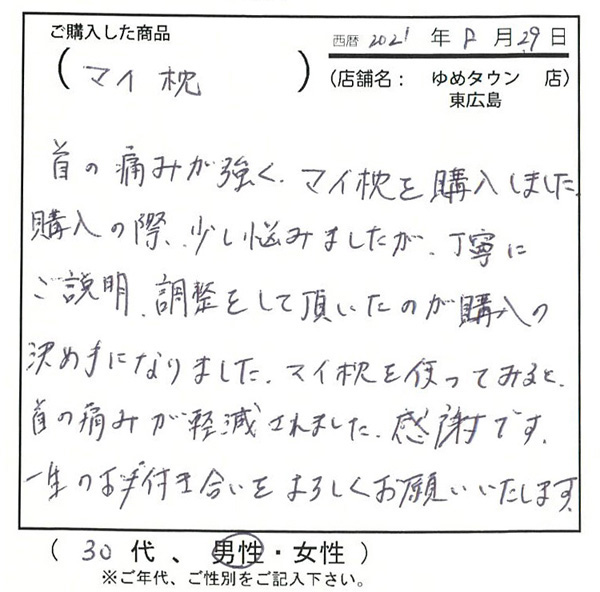 ご購入した商品
西暦 2021 年 8 月 29 日
(マイ枕)
(店舗名: ゆめタウン 店)
東広島
首の痛みが強く、マイ枕を購入しました。
購入の際、少し悩みましたが、丁寧に
ご説明、調整をして頂いたのが購入の
決め手になりました。マイ枕を使ってみると、
首の痛みが軽減されました。感謝です。
一生のお付き合いをよろしくお願いいたします。
(30代、男性・女性)
※ご年代、ご性別をご記入下さい。